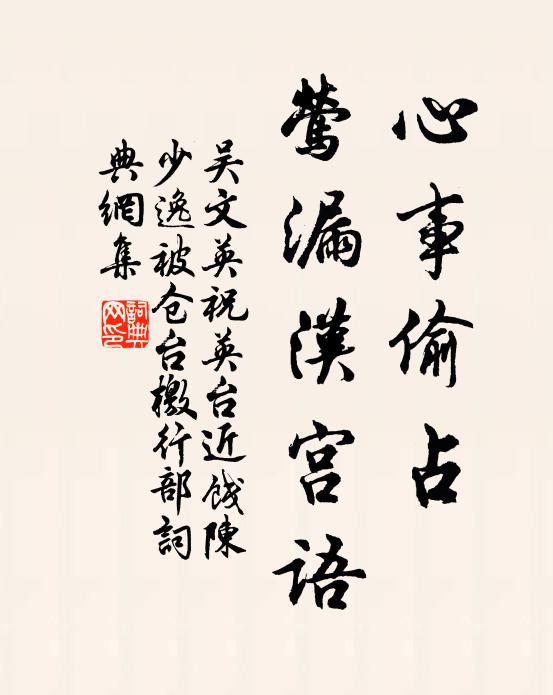 心事偷占
莺漏漢宫语
吴文英祝英台近餞陳
少逸被仓台檄行部詞
典網集
詞典网印